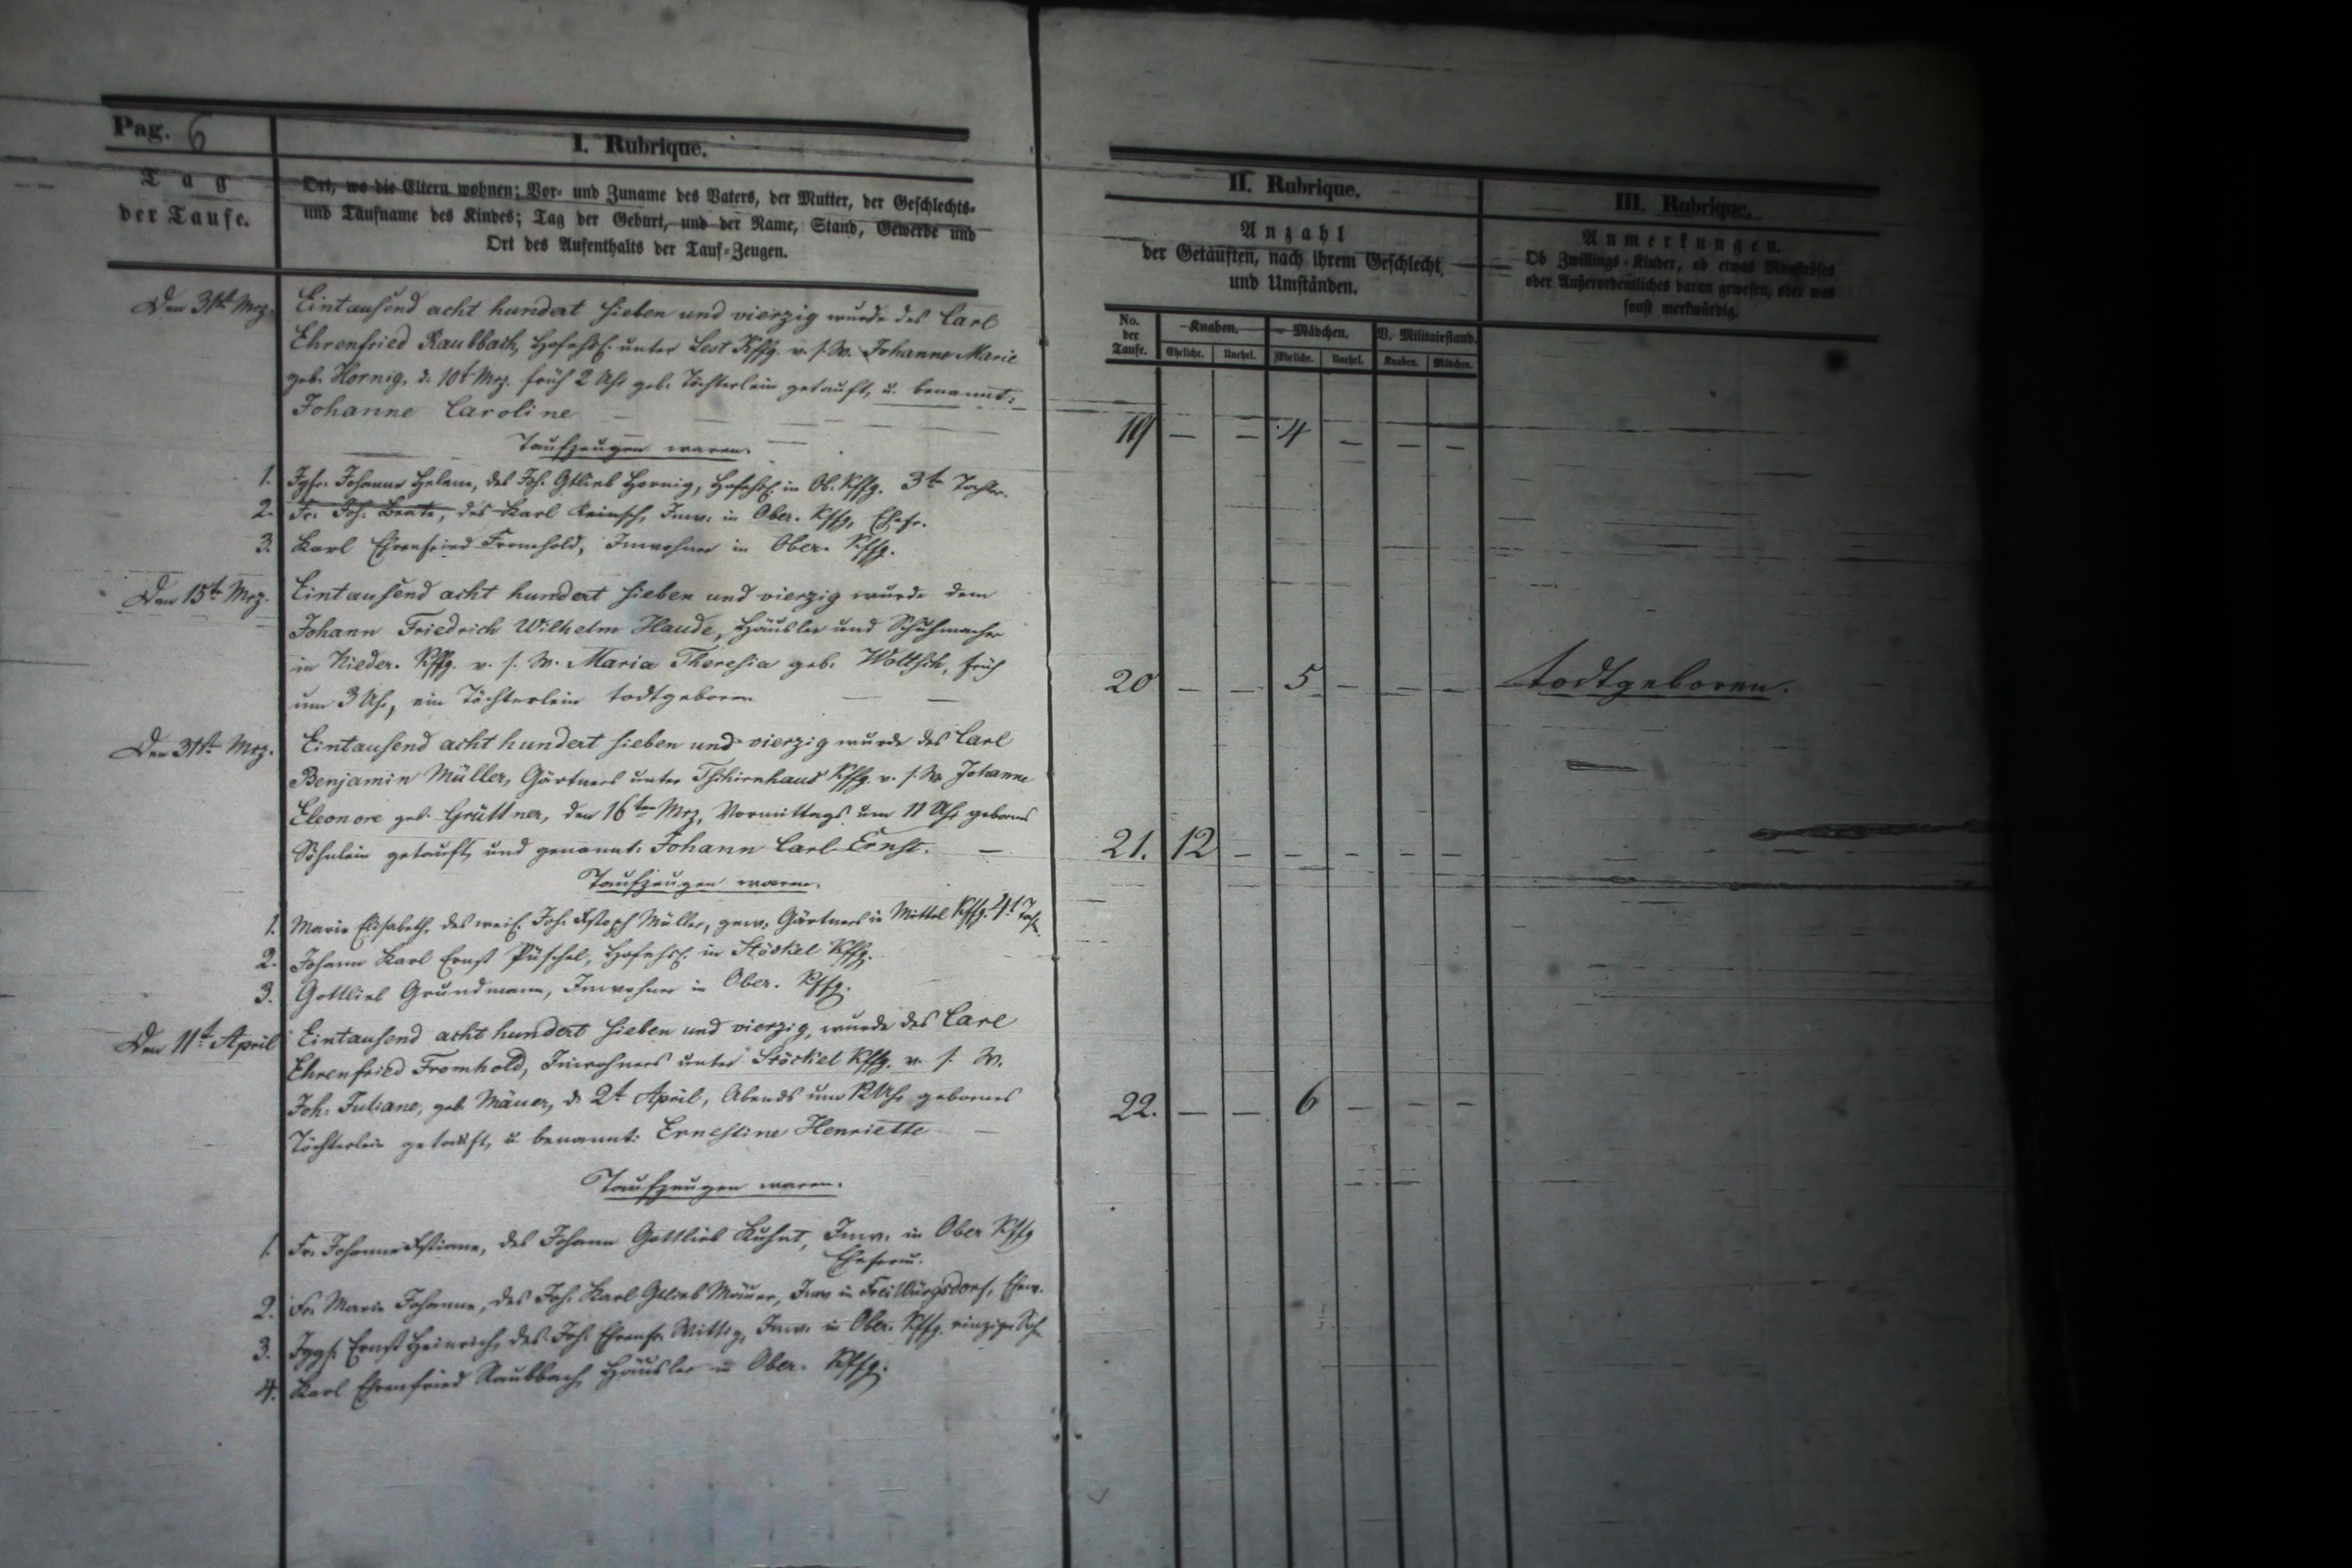 Pag. 6
I. Rubrique.
Tag
der Taufe.
Ort, wo die Eltern wohnen; Vor- und Zuname des Vaters, der Mutter, der Geschlechts-
und Taufname des Kindes; Tag der Geburt, und der Name, Stand, Gewerbe und
Ort des Aufenthalts der Tauf-Zeugen.
Den 31t. Mrz.
Eintausend acht hundert sieben und vierzig wurde des Carl
Ehrenfried Raubbach, unter Lest Kffg. v. s. W. Johanne Marie
geb. Hornig, d. 10t Mrz. früh 2 Uhr geb. Töchterlein getauft, u. benannt:
Johanne Caroline
Taufzeugen waren.
1. Jgfr. Johanne Helene, des Joh. Gtlieb Hornig, in Ob. Kffg. 3te Tochter.
2. Fr. Joh. Beate, des Karl Reinsch, Inw. in Ober. Kffg. Ehefr.
3. Karl Ehrenfried Fromhold, Inwohner in Ober. Kffg.
Den 15t. Mrz.
Eintausend acht hundert sieben und vierzig wurde dem
Johann Friedrich Wilhelm Haude, Häusler und Schuhmacher
in Nieder. Kffg. v. s. W. Maria Theresia geb. Woltsch, früh
um 3 Uhr, ein Töchterlein todtgeboren
Den 31st. Mrz.
Eintausend acht hundert sieben und vierzig wurde des Carl
Benjamin Müller, Gärtners unter Tschirnhaus Kffg. v. s. W. Johanne
Eleonore geb. Grüttner, den 16ten Mrz, Vormittags um 11 Uhr gebornes
Söhnlein getauft, und genannt: Johann Carl Ernst.
Taufzeugen waren.
1. Marie Elisabeth, des weil. Joh. Müller, gew. Gärtners in Mittel Kffg. 4t Toch.
2. Johann Karl Ernst Püschel, in Stöckel Kffg.
3. Gottlieb Grundmann, Inwohner in Ober. Kffg.
Den 11t. April
Eintausend acht hundert sieben und vierzig, wurde des Carl
Ehrenfried Fromhold, Inwohners unter Stöckel Kffg. v. s. W.
Joh. Juliane, geb. Mäuer, d. 2t April, Abends um 12 Uhr gebornes
Töchterlein getauft, u. benannt: Ernestine Henriette
Taufzeugen waren.
1. Fr. Johanne des Johann Gottlieb Kuhnt, Inw. in Ober Kffg
2. Fr. Marie Johanne, des Joh. Karl Gtlieb Mäuer, Inw in Frei Würgsdorf, Ehew.
3. Jggs. Ernst Heinrich, des Joh. Ehrenfr. Wittig, Inw. in Ober. Kffg. einziger Soh
4. Karl Ehrenfried Raubbach, Häusler in Ober. Kffg.
II. Rubrique.
Anzahl
der Getauften, nach ihrem Geschlecht
und Umständen.
No.
der
Taufe.
Knaben.
Mädchen.
V. Militairstand.
Eheliche. Unehel. Eheliche. Unehel. Knaben. Mädchen.
19 — — 4 — — —
20 — — 5 — — —
21. 12 — — — — —
22. — — 6 — — —
III. Rubrique.
Anmerkungen.
Ob Zwillings-Kinder, ob etwas Monströses
oder Außerordentliches daran gewesen, oder was
sonst merkwürdig.
todtgeboren.